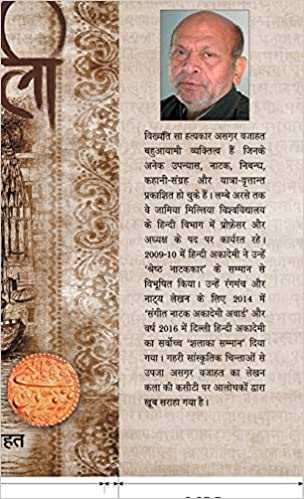 ली
विख्यति सा हत्यकार असग़र वजाहत
बहुआयामी व्यक्तित्व हैं जिनके
अनेक उपन्यास, नाटक, निबन्ध,
कहानी-संग्रह और यात्रा-वृत्तान्त
प्रकाशित हो चुके हैं। लम्बे अरसे तक
वे जामिया मिल्लिया विश्वविद्यालय
के हिन्दी विभाग में प्रोफ़ेसर और
अध्यक्ष के पद पर कार्यरत रहे।
2009-10 में हिन्दी अकादेमी ने उन्हें
‘श्रेष्ठ नाटककार’ के सम्मान से
विभूषित किया। उन्हें रंगमंच और
नाट्य लेखन के लिए 2014 में
‘संगीत नाटक अकादेमी अवार्ड’ और
वर्ष 2016 में दिल्ली हिन्दी अकादेमी
का सर्वोच्च ‘शलाका सम्मान’ दिया
गया। गहरी सांस्कृतिक चिन्ताओं से
उपजा असग़र वजाहत का लेखन
कला की कसौटी पर आलोचकों द्वारा
खूब सराहा गया है।
हत